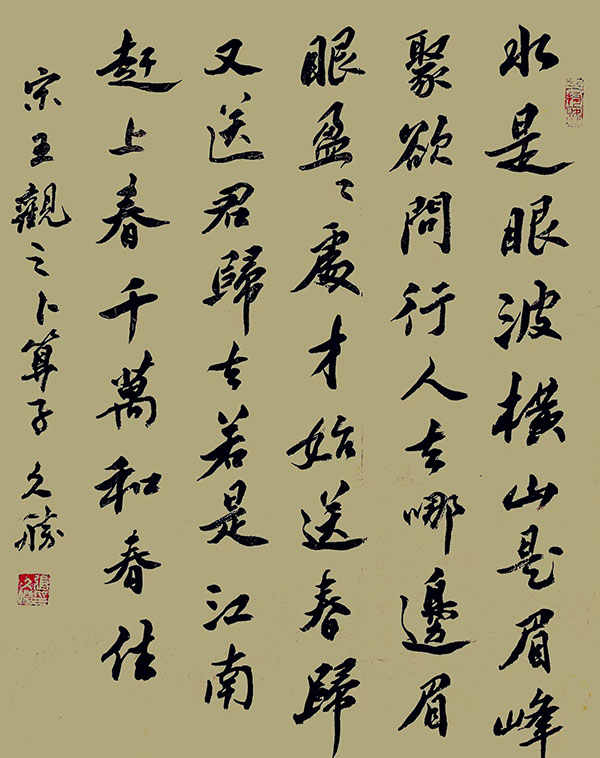 水是眼波横山是眉峰
聚欲問行人去哪邊眉
眼盈〻處才始送春歸
又送君歸去若是江南
赶上春千萬和春住
宋王觀之卜算子 久勝